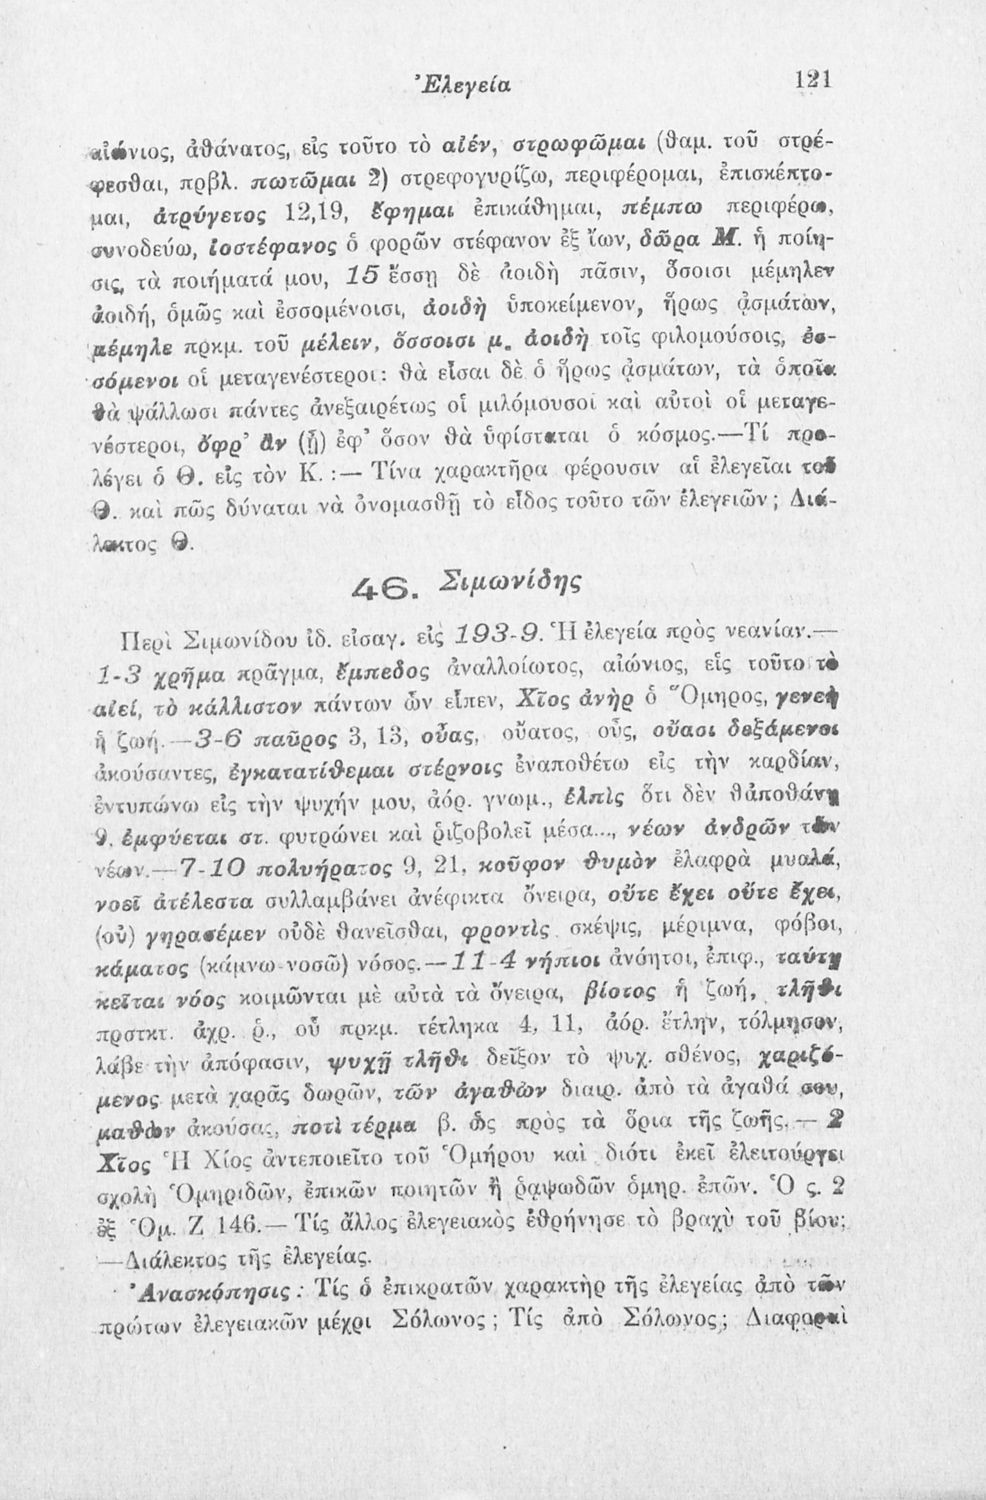 Ἐλεγεία 121
αἰώνιος, ἀθάνατος, εἰς τοῦτο τὸ αἰέν, στρωφῶμαι (θαμ. τοῦ στρέ-
φεσθαι, πρβλ. πωτῶμαι 2) στρεφογυρίζω, περιφέρομαι, ἐπισκέπτο-
μαι, ἀτρύγετος 12,19, ἔφημαι ἐπικάθημαι, πέμπω περιφέρω,
συνοδεύω, ἰοστέφανος ὁ φορῶν στέφανον ἐξ ἴων, δῶρα Μ. ἡ ποίη-
σις, τὰ ποιήματά μου, 15 ἔσσῃ δὲ ἀοιδὴ πᾶσιν, ὅσοισι μέμηλεν
ἀοιδή, ὁμῶς καὶ ἐσσομένοισι, ἀοιδὴ ὑποκείμενον, ἥρως ᾀσμάτων,
μέμηλε πρκμ. τοῦ μέλειν, ὅσσοισι μ. ἀοιδὴ τοῖς φιλομούσοις, ἐσ-
σόμενοι οἱ μεταγενέστεροι: θὰ εἶσαι δὲ ὁ ἥρως ᾀσμάτων, τὰ ὁποῖα
θὰ ψάλλωσι πάντες ἀνεξαιρέτως οἱ μιλόμουσοι καὶ αὐτοὶ οἱ μεταγε-
νέστεροι, ὄφρ' ἂν (ᾖ) ἐφ' ὅσον θὰ ὑφίσταται ὁ κόσμος.—Τί προ-
λέγει ὁ Θ. εἰς τὸν Κ. :— Τίνα χαρακτῆρα φέρουσιν αἱ ἐλεγεῖαι τοῦ
Θ. καὶ πῶς δύναται νὰ ὀνομασθῇ τὸ εἶδος τοῦτο τῶν ἐλεγειῶν; Διά-
λεκτος Θ.
46. Σιμωνίδης
Περὶ Σιμωνίδου ἰδ. εἰσαγ. εἰς 193-9. Ἡ ἐλεγεία πρὸς νεανίαν.—
1-3 χρῆμα πρᾶγμα, ἔμπεδος ἀναλλοίωτος, αἰώνιος, εἰς τοῦτο τὸ
αἰεί, τὸ κάλλιστον πάντων ὧν εἶπεν, Χῖος ἀνὴρ ὁ Ὅμηρος, γενεὴ
ἡ ζωή.—3-6 παῦρος 3, 13, οὖας, οὔατος, οὖς, οὔασι δεξάμενοι
ἀκούσαντες, ἐγκατατίθεμαι στέρνοις ἐναποθέτω εἰς τὴν καρδίαν,
ἐντυπώνω εἰς τὴν ψυχήν μου, ἀόρ. γνωμ., ἐλπὶς ὅτι δὲν θἀποθάνῃ
9, ἐμφύεται στ. φυτρώνει καὶ ῥιζοβολεῖ μέσα..., νέων ἀνδρῶν τῶν
νέων.—7-10 πολυήρατος 9, 21, κοῦφον θυμὸν ἐλαφρὰ μυαλά,
νοεῖ ἀτέλεστα συλλαμβάνει ἀνέφικτα ὄνειρα, οὔτε ἔχει οὔτε ἔχει,
(οὐ) γηρασέμεν οὐδὲ θανεῖσθαι, φροντὶς σκέψις, μέριμνα, φόβοι,
κάματος (κάμνω-νοσῶ) νόσος.—11-4 νήπιοι ἀνόητοι, ἐπιφ., ταύτῃ
κεῖται νόος κοιμῶνται μὲ αὐτὰ τὰ ὄνειρα, βίοτος ἡ ζωή, τλῆθι
πρστκτ. ἀχρ. ῥ., οὗ πρκμ. τέτληκα 4, 11, ἀόρ. ἔτλην, τόλμησον,
λάβε τὴν ἀπόφασιν, ψυχῇ τλῆθι δεῖξον τὸ ψυχ. σθένος, χαριζό-
μενος μετὰ χαρᾶς δωρῶν, τῶν ἀγαθῶν διαιρ. ἀπὸ τὰ ἀγαθά σου,
μαθὼν ἀκούσας, ποτὶ τέρμα β. ὡς πρὸς τὰ ὅρια τῆς ζωῆς.— 2
Χῖος Ἡ Χίος ἀντεποιεῖτο τοῦ Ὁμήρου καὶ διότι ἐκεῖ ἐλειτούργει
σχολὴ Ὁμηριδῶν, ἐπικῶν ποιητῶν ἢ ῥαψωδῶν ὁμηρ. ἐπῶν. Ὁ ς. 2
ἐξ Ὁμ. Ζ 146.— Τίς ἄλλος ἐλεγειακὸς ἐθρήνησε τὸ βραχὺ τοῦ βίου;
—Διάλεκτος τῆς ἐλεγείας.
Ἀνασκόπησις: Τίς ὁ ἐπικρατῶν χαρακτὴρ τῆς ἐλεγείας ἀπὸ τῶν
πρώτων ἐλεγειακῶν μέχρι Σόλωνος; Τίς ἀπὸ Σόλωνος; Διαφοραὶ